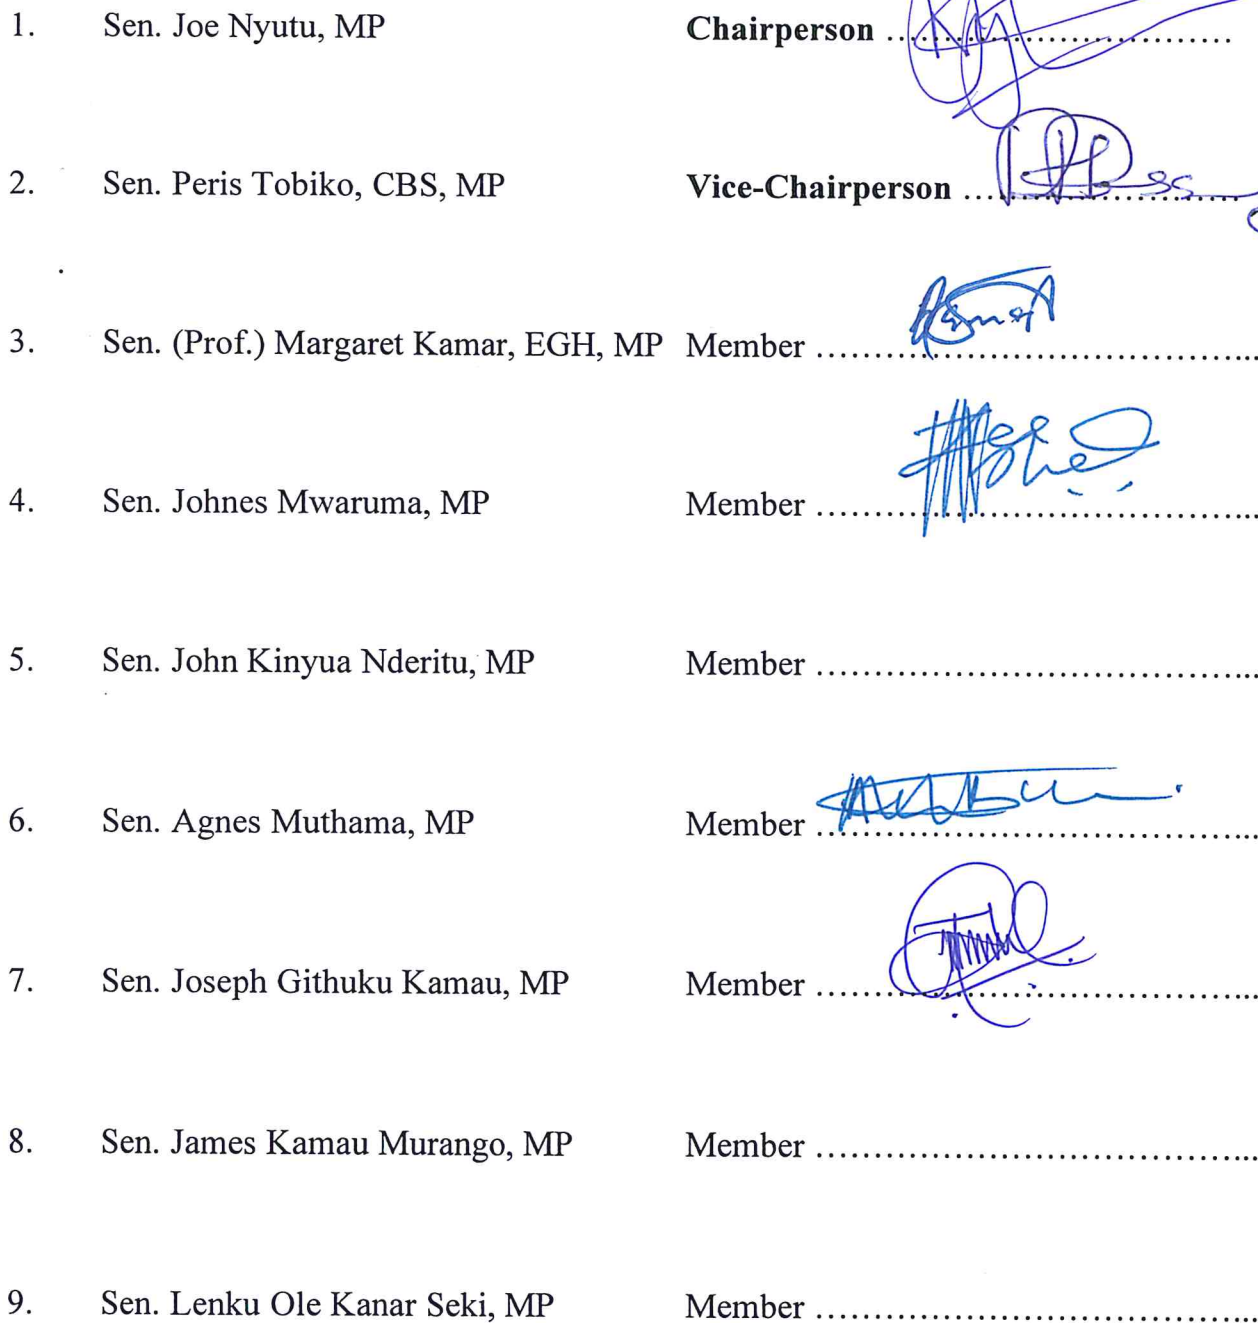 1. Sen. Joe Nyutu, MP Chairperson ....................................
2. Sen. Peris Tobiko, CBS, MP Vice-Chairperson ............................
3. Sen. (Prof.) Margaret Kamar, EGH, MP Member ......................................
4. Sen. Johnes Mwaruma, MP Member ......................................
5. Sen. John Kinyua Nderitu, MP Member ......................................
6. Sen. Agnes Muthama, MP Member ......................................
7. Sen. Joseph Githuku Kamau, MP Member ......................................
8. Sen. James Kamau Murango, MP Member ......................................
9. Sen. Lenku Ole Kanar Seki, MP Member ......................................